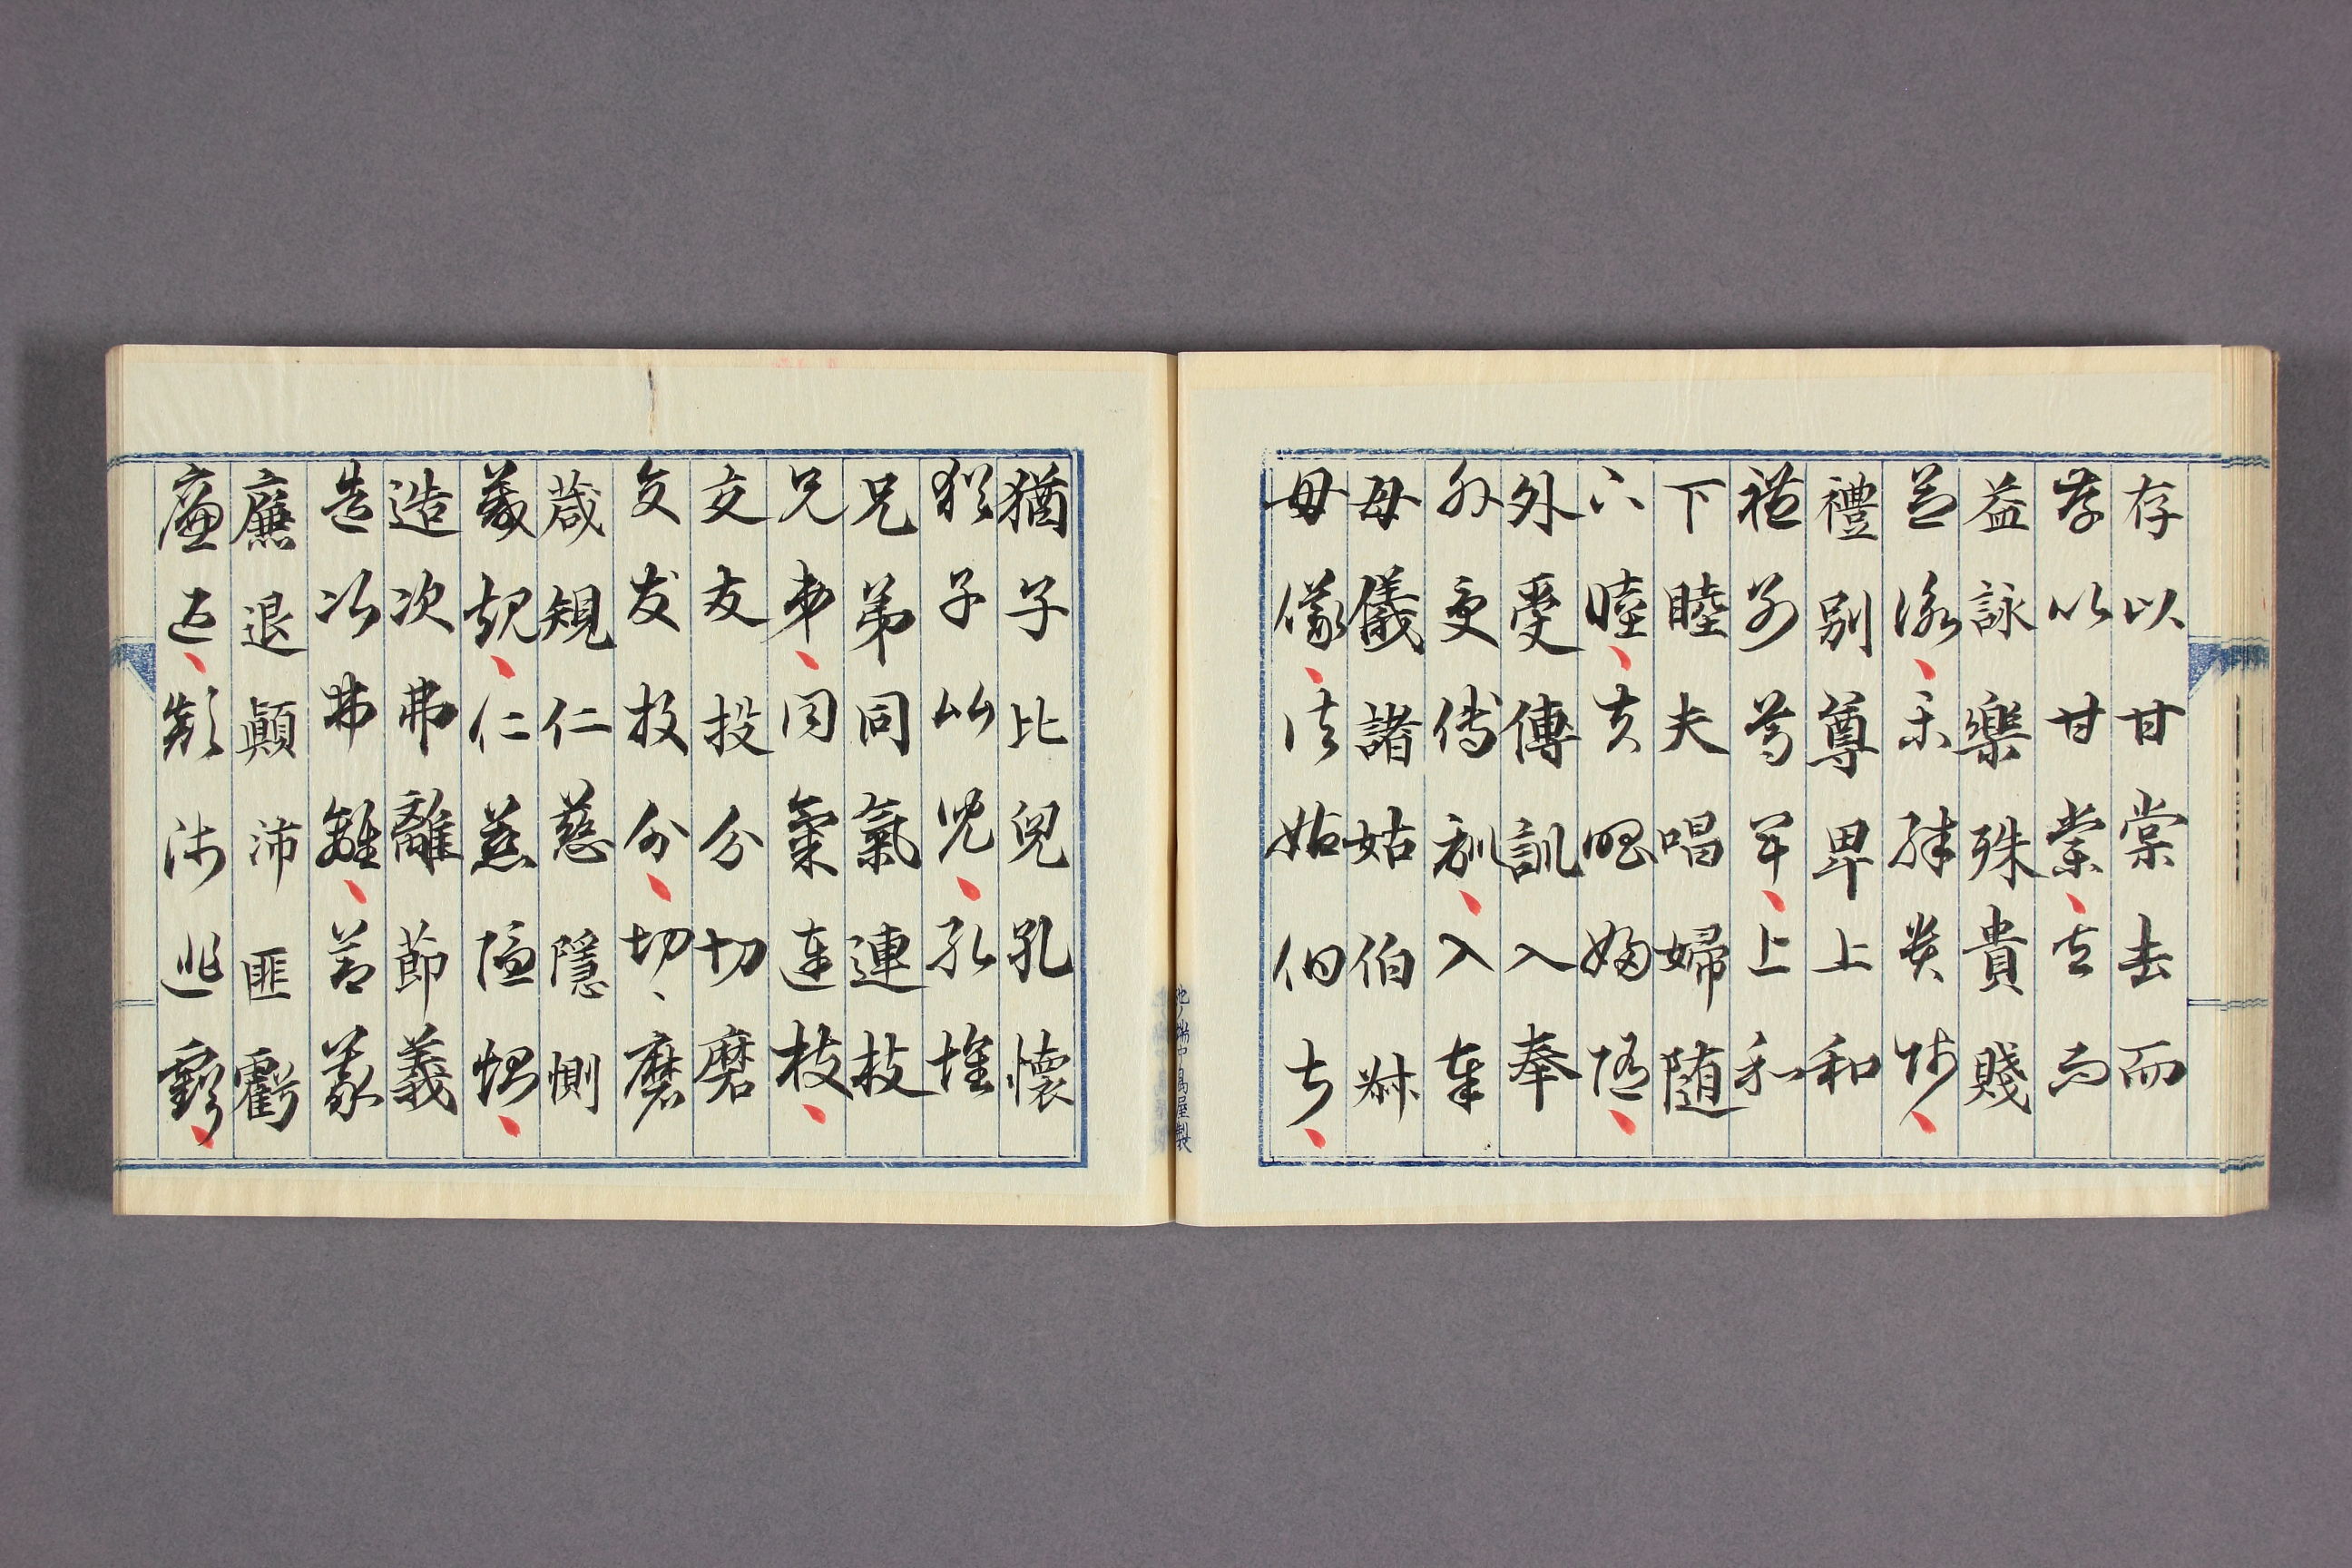 存以甘棠去而
存以甘棠去而
益詠樂殊貴賤
益詠樂殊貴賤
禮別尊卑上和
禮別尊卑上和
下睦夫唱婦随
下睦夫唱婦随
外受傅訓入奉
外受傅訓入奉
母儀諸姑伯叔
母儀諸姑伯叔
猶子比兒孔懐
猶子比兒孔懐
兄弟同氣連枝
兄弟同氣連枝
交友投分切磨
交友投分切磨
葴規仁慈隱惻
葴規仁慈隱惻
造次弗離節義
造次弗離節義
廉退顛沛匪虧
廉退顛沛匪虧
池ノ端中島屋製